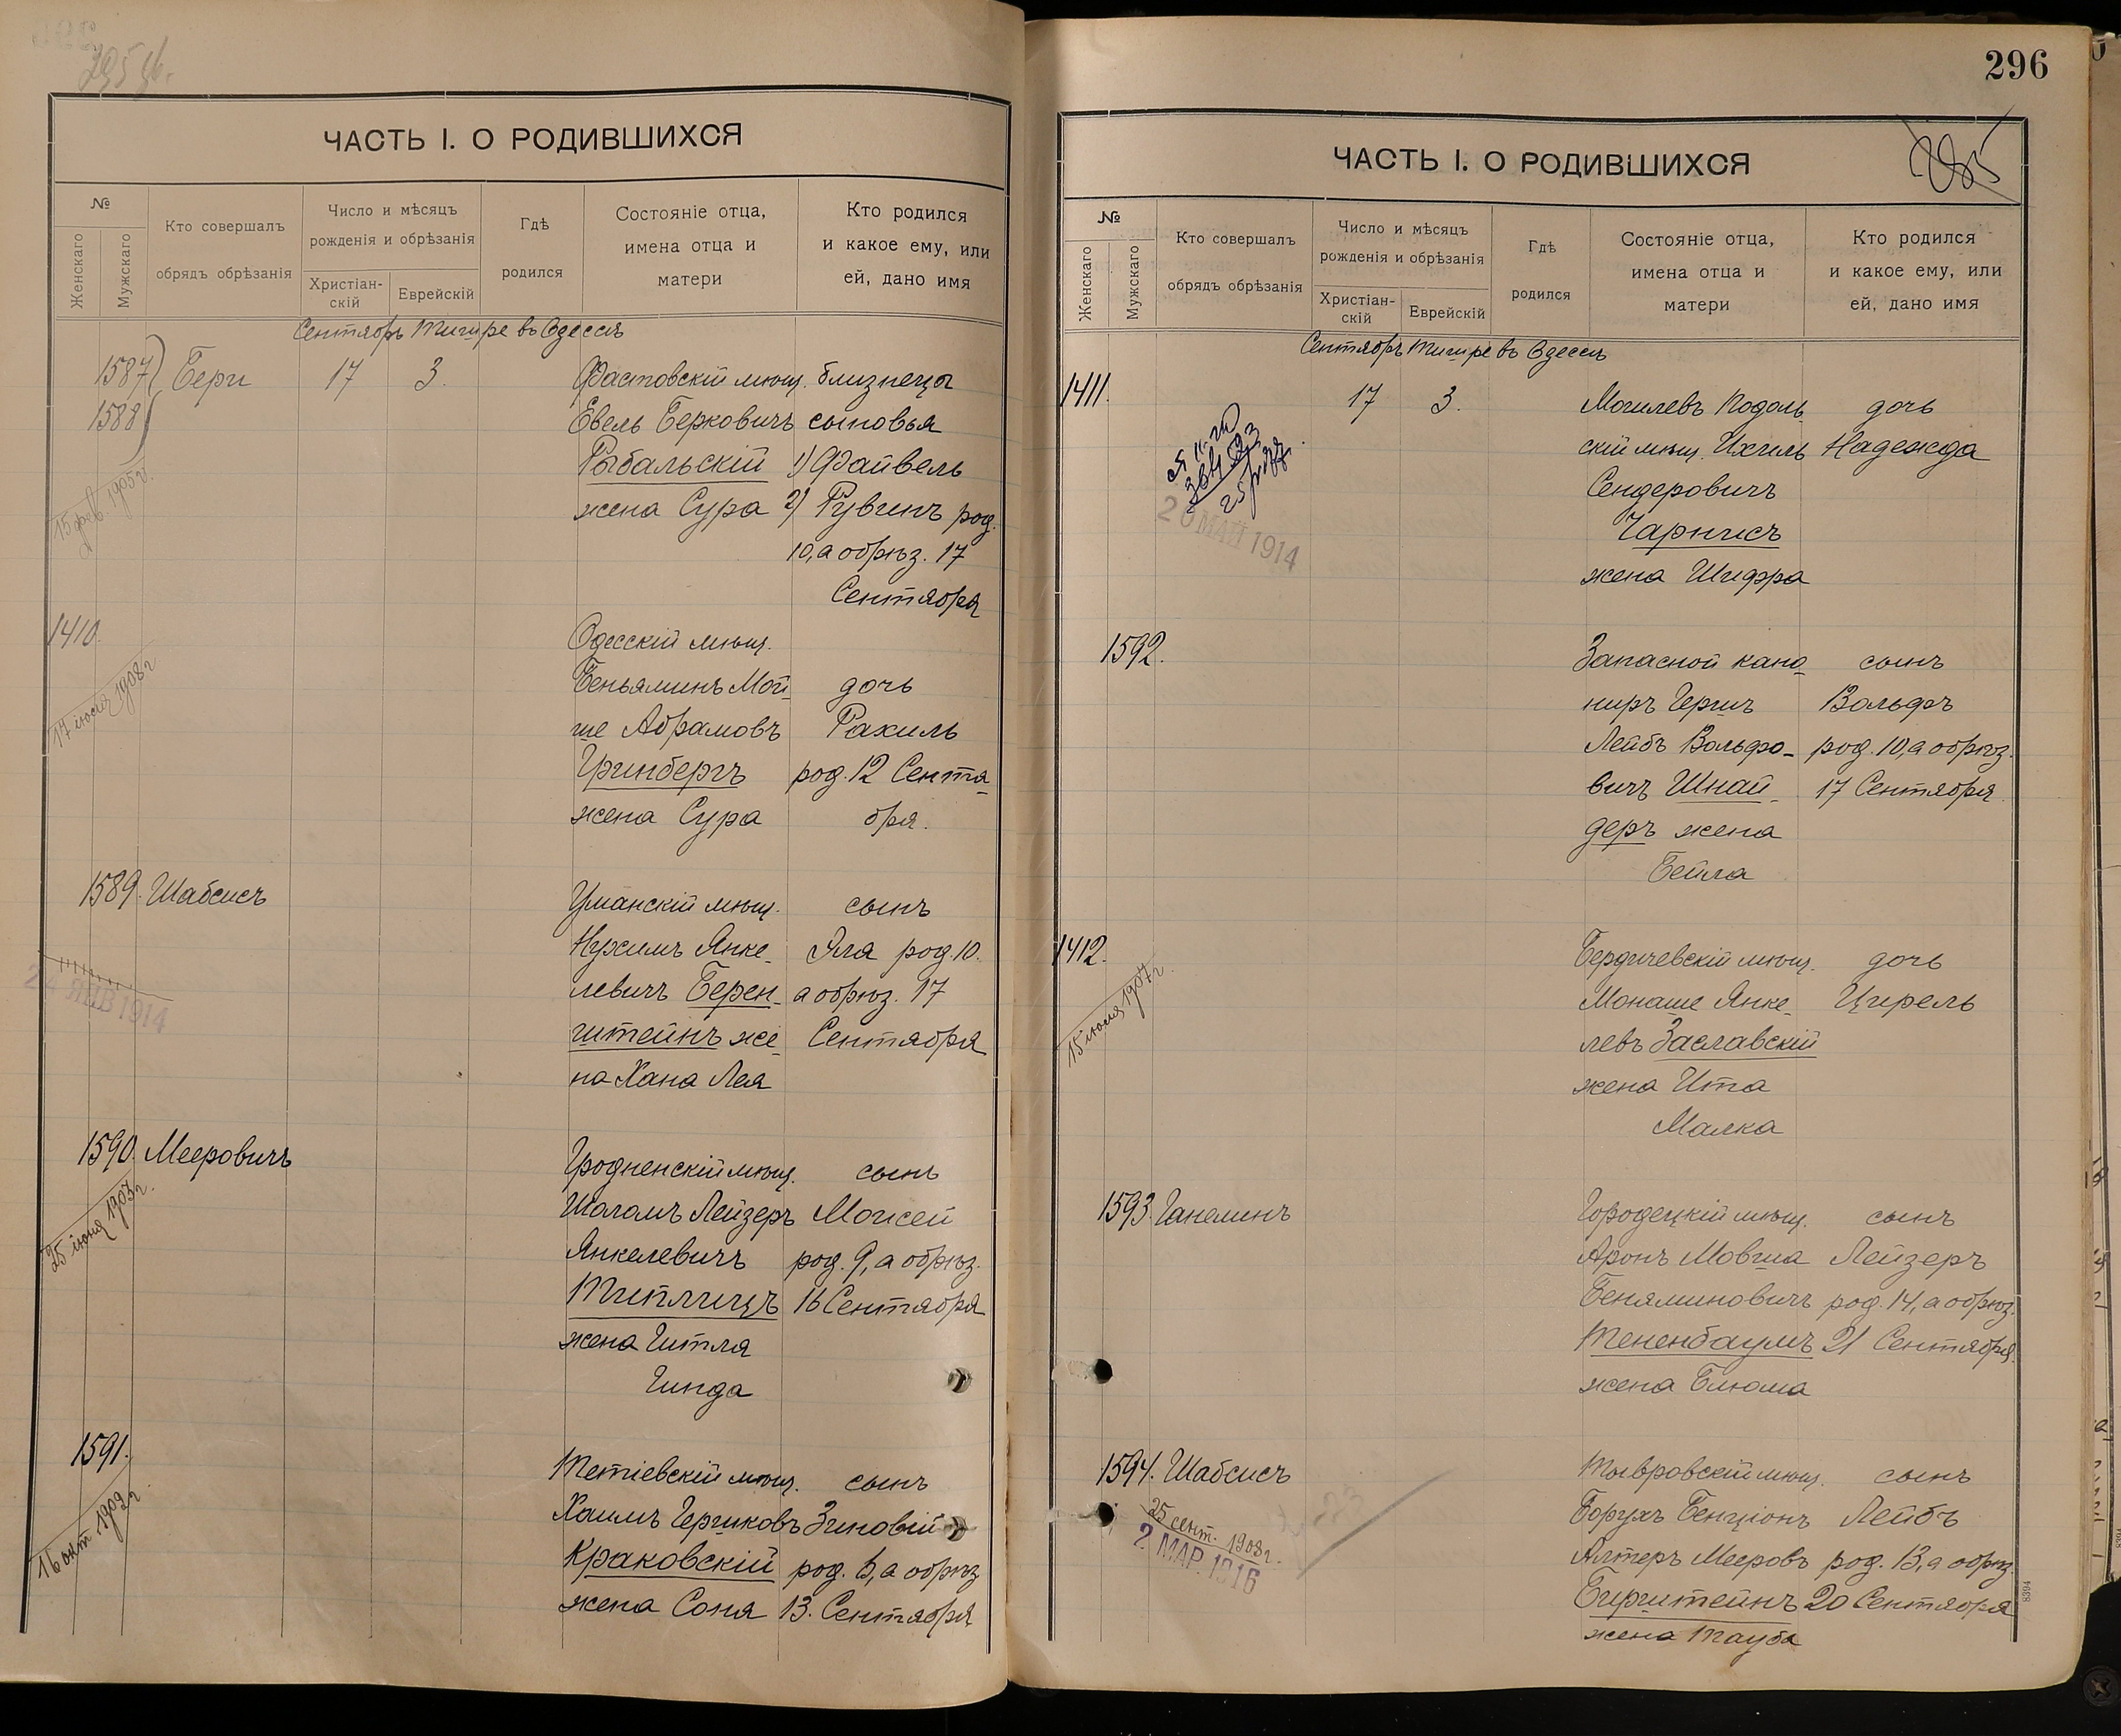 295 об.
ЧАСТЬ I. О РОДИВШИХСЯ
№
Женскаго
Мужскаго
Кто совершалъ
обрядъ обрѣзанія
Число и мѣсяцъ
рожденія и обрѣзанія
Христіан-
скій
Еврейскій
Гдѣ
родился
Состояніе отца,
имена отца и
матери
Кто родился
и какое ему, или
ей, дано имя
Сентябрь Тишре въ Одессѣ
1587 Бери 17 3. Фастовскій мѣщ. близнецы
1588 Евель Берковичъ сыновья
Рыбальскій 1) Файвель
жена Сура 2) Рувинъ род.
15 фев. 1905 г.
10, а обрѣз. 17
Сентября
1410. Одесскій мѣщ.
17 іюля 1908 г
Беньяминъ Мой- дочь
ше Абрамовъ Рахиль
Гринбергъ род. 12 Сентя-
жена Сура бря.
1589. Шабсисъ Уманскій мѣщ. сынъ
Нухимъ Янке- Эля род. 10.
левичъ Берен- а обрѣз. 17
24 ЯНВ 1914
штейнъ же- Сентября
на Хана Лея
1590. Мееровичъ Гродненскій мѣщ. сынъ
25 іюня 1907 г.
Шоломъ Лейзеръ Моисей
Янкелевичъ род. 9, а обрѣз.
Типлицъ 16 Сентября
жена Гитля
Гинда
1591. Тетіевскій мѣщ. сынъ
16 окт. 1909 г
Хаимъ Гершковъ Зиновій
Краковскій род. 6, а обрѣз
жена Соня 13. Сентября
296
285
ЧАСТЬ I. О РОДИВШИХСЯ
№
Женскаго
Мужскаго
Кто совершалъ
обрядъ обрѣзанія
Число и мѣсяцъ
рожденія и обрѣзанія
Христіан-
скій
Еврейскій
Гдѣ
родился
Состояніе отца,
имена отца и
матери
Кто родился
и какое ему, или
ей, дано имя
Сентябрь Тишре въ Одессѣ
1411. 17 3. Могилевъ Подоль- дочь
скій мѣщ. Ихиль Надежда
Сендеровичъ
20 МАЙ 1914
Чарнисъ
жена Шифра
1592. Запасной кано- сынъ
ниръ Гершъ Вольфъ
Лейбъ Вольфо- род. 10, а обрѣз.
вичъ Шнай- 17 Сентября
деръ жена
Бейла
1412. Бердичевскій мѣщ. дочь
15 іюня 1907 г.
Монаше Янке- Цирель
левъ Заславскій
жена Ита
Малка
1593. Ганелинъ Городецкій мѣщ. сынъ
Аронъ Мовша Лейзеръ
Беняминовичъ род. 14, а обрѣз.
Тененбаумъ 21 Сентября.
жена Блюма
1594. Шабсисъ Тывровскій мѣщ. сынъ
25 сент. 1908 г.
2. МАР. 1916
Борухъ Бенціонъ Лейбъ
Алтеръ Мееровъ род. 13, а обрѣз.
Бирштейнъ 20 Сентября
жена Тауба
8304